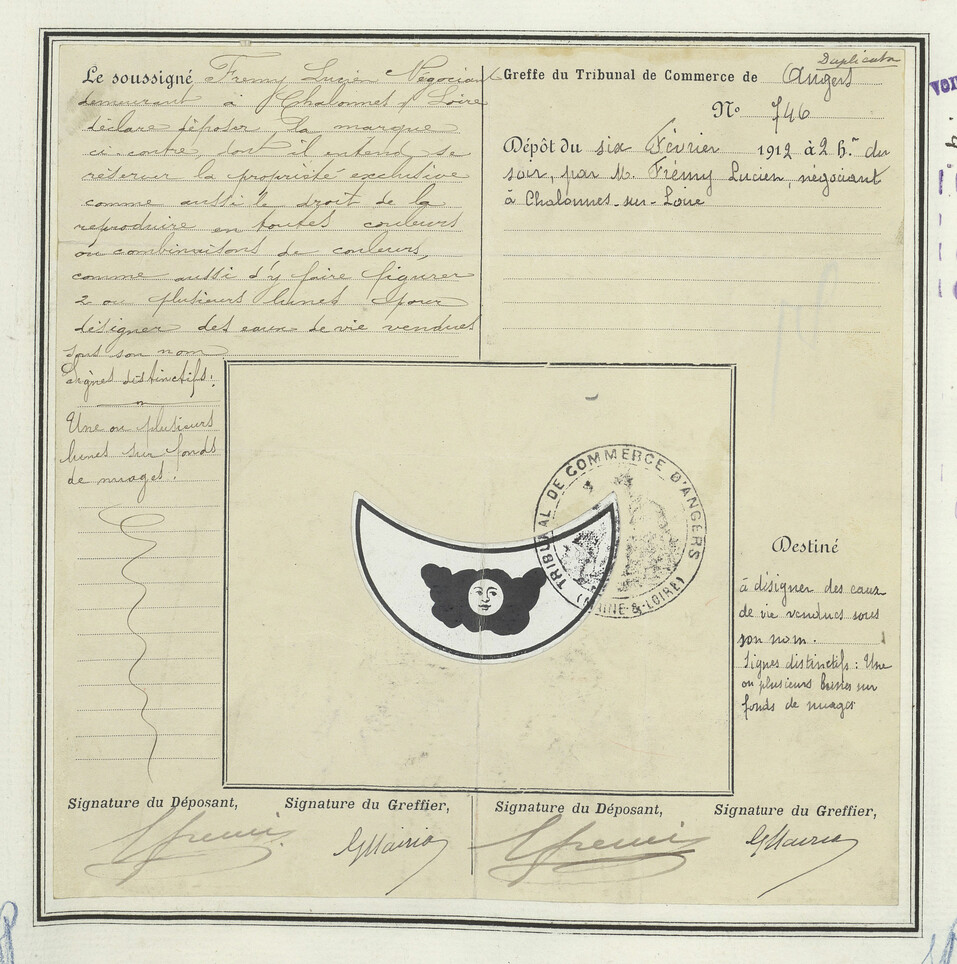 Le soussigné Fremy Lucien Négociant
demeurant à Chalonnes s/ Loire
déclare déposer la marque
ci-contre, dont il entend se
réserver la propriété exclusive
comme aussi le droit de la
reproduire en toutes couleurs
ou combinaisons de couleurs,
comme aussi d'y faire figurer
2 ou plusieurs lunes pour
désigner des eaux de vie vendues
sous son nom
Signes distinctifs:
Une ou plusieurs
lunes sur fonds
de nuages.
Duplicata
Greffe du Tribunal de Commerce de Angers
No 746
Dépôt du six Février 1912 à 2 h. du
soir, par M. Frémy Lucien, négociant
à Chalonnes-sur-Loire
TRIBUNAL DE COMMERCE D'ANGERS
(MAINE-&-LOIRE)
Destiné
à désigner des eaux
de vie vendues sous
son nom.
Signes distinctifs: Une
ou plusieurs lunes sur
fonds de nuages
Signature du Déposant, Signature du Greffier, Signature du Déposant, Signature du Greffier,